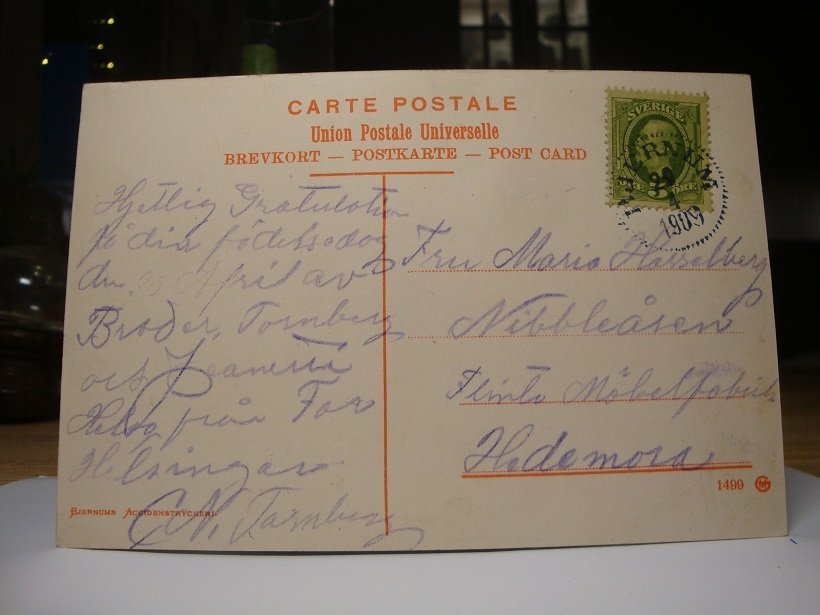 CARTE POSTALE
Union Postale Universelle
BREVKORT — POSTKARTE — POST CARD
SVERIGE
ÖRE
BJERNUM
1909
Hjertlig Gratulation
på din födelsedag
den 30 April av
Broder Tornberg
och
från Far
Helsingar
C.N. Tornberg
Fru Maria Hasselberg
Nibbleåsen
Flinta Möbelfabrik
Hedemora
BJERNUMS ACCIDENSTRYCKERI
1499